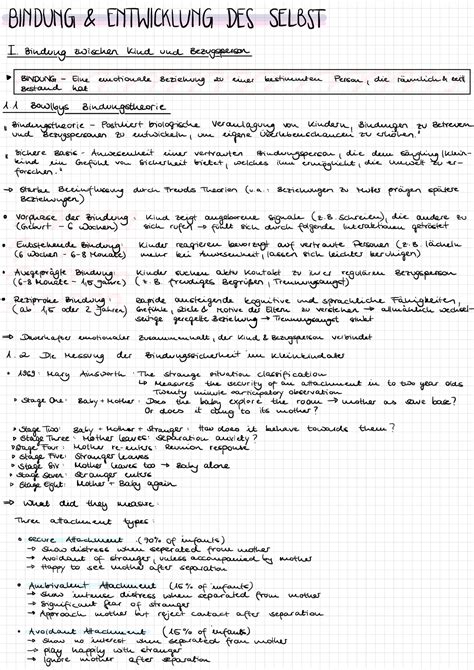 BINDUNG & ENTWICKLUNG DES SELBST
I. Bindung zwischen Kind und Bezugsperson
BINDUNG - Eine emotionale Beziehung zu einer bestimmten Person, die räumlich & zeitl. Bestand hat
1.1 Bowlbys Bindungstheorie
Bindungstheorie - Postuliert biologische Veranlagung von Kindern, Bindungen zu Betreuern
und Bezugspersonen zu entwickeln, um eigene Überlebenschancen zu erhöhen."
Sichere Basis - Anwesenheit einer vertrauten Bindungsperson, die dem Säugling/Klein-
kind ein Gefühl von Sicherheit bietet, welches ihm ermöglicht, die Umwelt zu er-
forschen."
→ Starke Beeinflussung durch Freuds Theorien (u.a.: Beziehungen zu Mutter prägen spätere
Beziehungen)
• Vorphase der Bindung: Kind zeigt angeborene Signale (z.B. Schreien), die andere zu
(Geburt - 6 Wochen) sich rufen → fühlt sich durch folgende Interaktionen getröstet
• Entstehende Bindung: Kinder reagieren bevorzugt auf vertraute Personen (z.B. lächeln
(6 Wochen - 6-8 Monate) mehr bei Anwesenheit, lassen sich leichter beruhigen)
• Ausgeprägte Bindung Kinder suchen aktiv Kontakt zu ihrer regulären Bezugsperson
(6-8 Monate - 1,5 Jahre) (z.B. freudiges Begrüßen, Trennungsangst)
• Reziproke Bindung: Rapide ansteigende kognitive und sprachliche Fähigkeiten,
(ab 1,5 oder 2 Jahren) Gefühle, Ziele & Motive der Eltern zu verstehen → allmählich wechsel-
seitige geregelte Beziehung → Trennungsangst sinkt
⇒ Dauerhafter emotionaler Zusammenhalt, der Kind & Bezugsperson verbindet
1.2 Die Messung der Bindungssicherheit im Kleinkindalter
• 1969: Mary Ainsworth: The strange situation classification
↳ Measures the security of an attachment in to two year olds
Twenty minute participatory observation
• Stage One: Baby + Mother: Does the baby explore the room → mother as save base?
Or does it cling to its mother?
• Stage Two: Baby + Mother + Stranger: How does it behave towards them?
• Stage Three: Mother leaves: separation anxiety?
• Stage Four: Mother re-enters: Reunion response
• Stage Five: Stranger leaves
• Stage Six: Mother leaves too → Baby alone
• Stage Seven: Stranger enters
• Stage Eight: Mother + Baby again
⇒ What did they measure:
Three attachment types:
• Secure Attachment (70% of infants)
→ Show distress when seperated from mother
→ Avoidant of stranger, unless accompanied by mother
→ Happy to see mother after separation
• Ambivalent Attachment (15% of infants)
→ Show intense distress when separated from mother
→ Significant fear of stranger
→ Approach mother but reject contact after separation
• Avoidant Attachment (15% of infants)
→ Show no interest when separated from mother
→ play happily with stranger
→ Ignore mother after separation